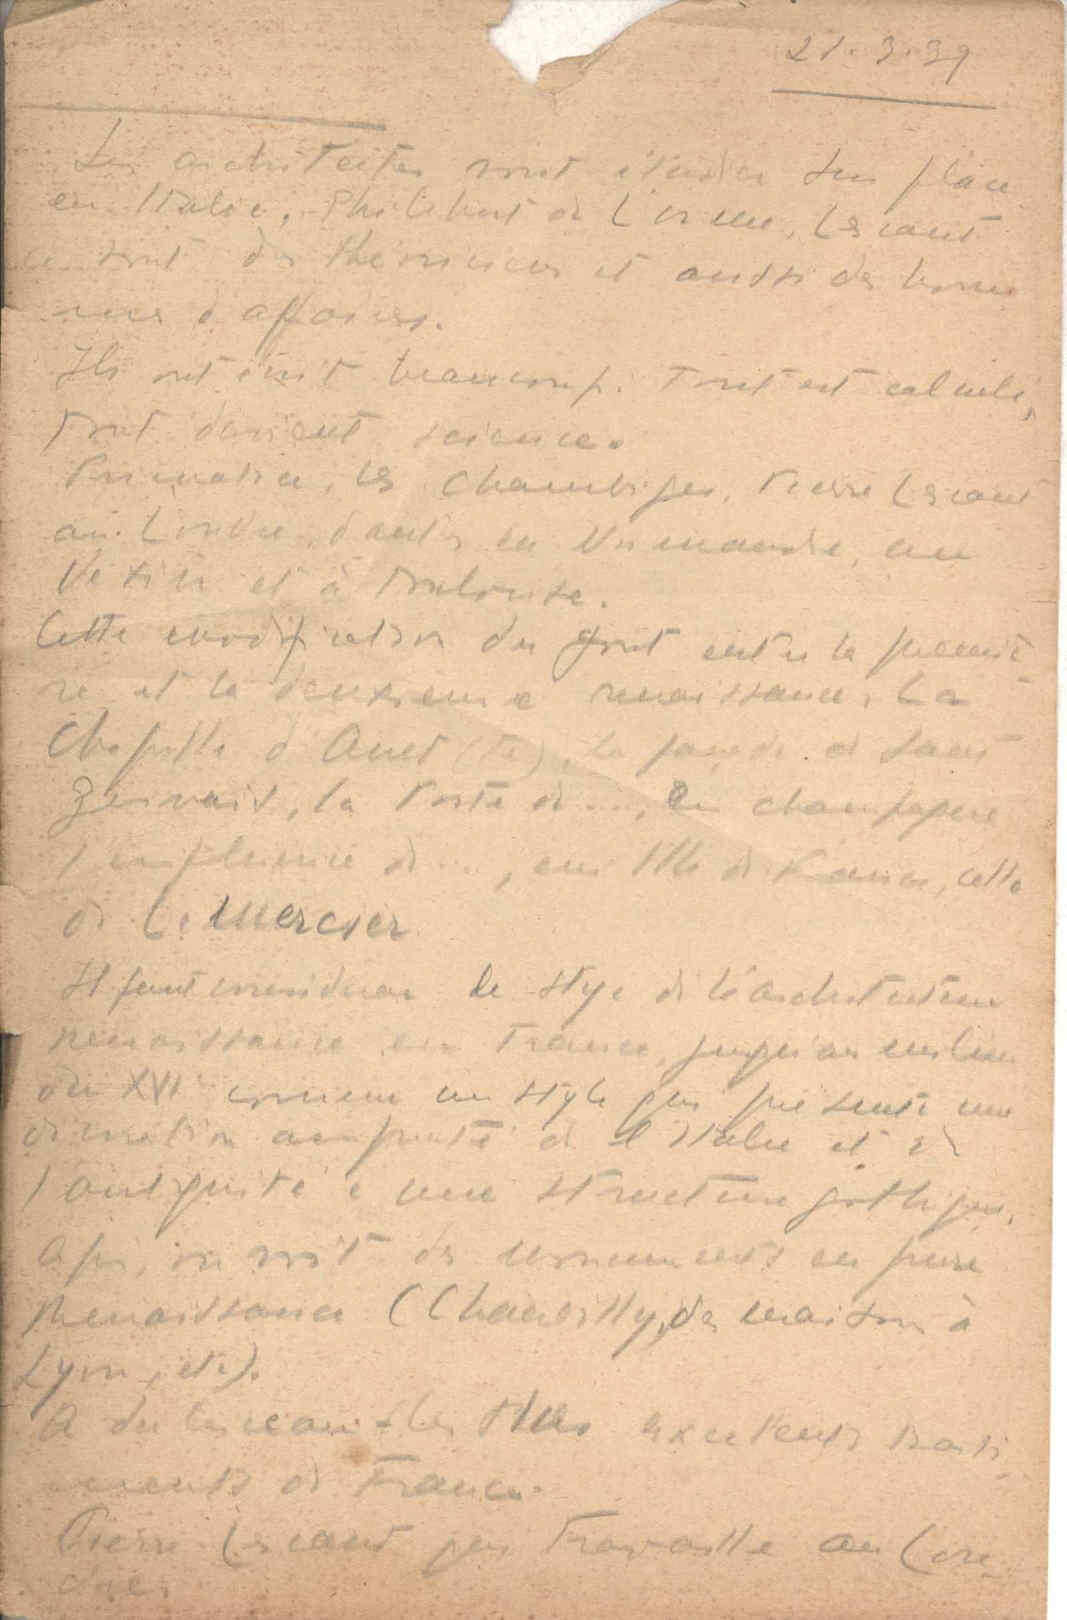 21.3.39
Les architectes vont étudier sur place
en Italie. Philibert de L'orme, Lescaut
ce sont des théoriciens et aussi des hom
mes d'affaires.
Ils ont écrit beaucoup. Tout est calculé,
tout devient science.
Primatice, les Chambiges, Pierre Lescaut
au Louvre, d'autres en Normandie, au
Vexin et à Toulouse.
Cette modification du goût entre la premiè
re et la deuxième renaissance. La
Chapelle d'Anet (), la façade de Saint
Gervais, la Porte de ..., En champagne
l'influence de ..., en Ille de France, celle
de Le Mercier
Il faut considerer le style de l'architecture
renaissance en France, jusqu'au milieu
du XVI comme un style qui présente une
décoration empruntée de l'Italie et de
l'antiquité à une structure gothique.
Après, on voit des monuments en pure
Renaissance (Chantilly, des maisons à
Lyon, etc).
A du les plus excellents Basti
ments de France.
Pierre Lescaut qui travaille au Lou
vre.